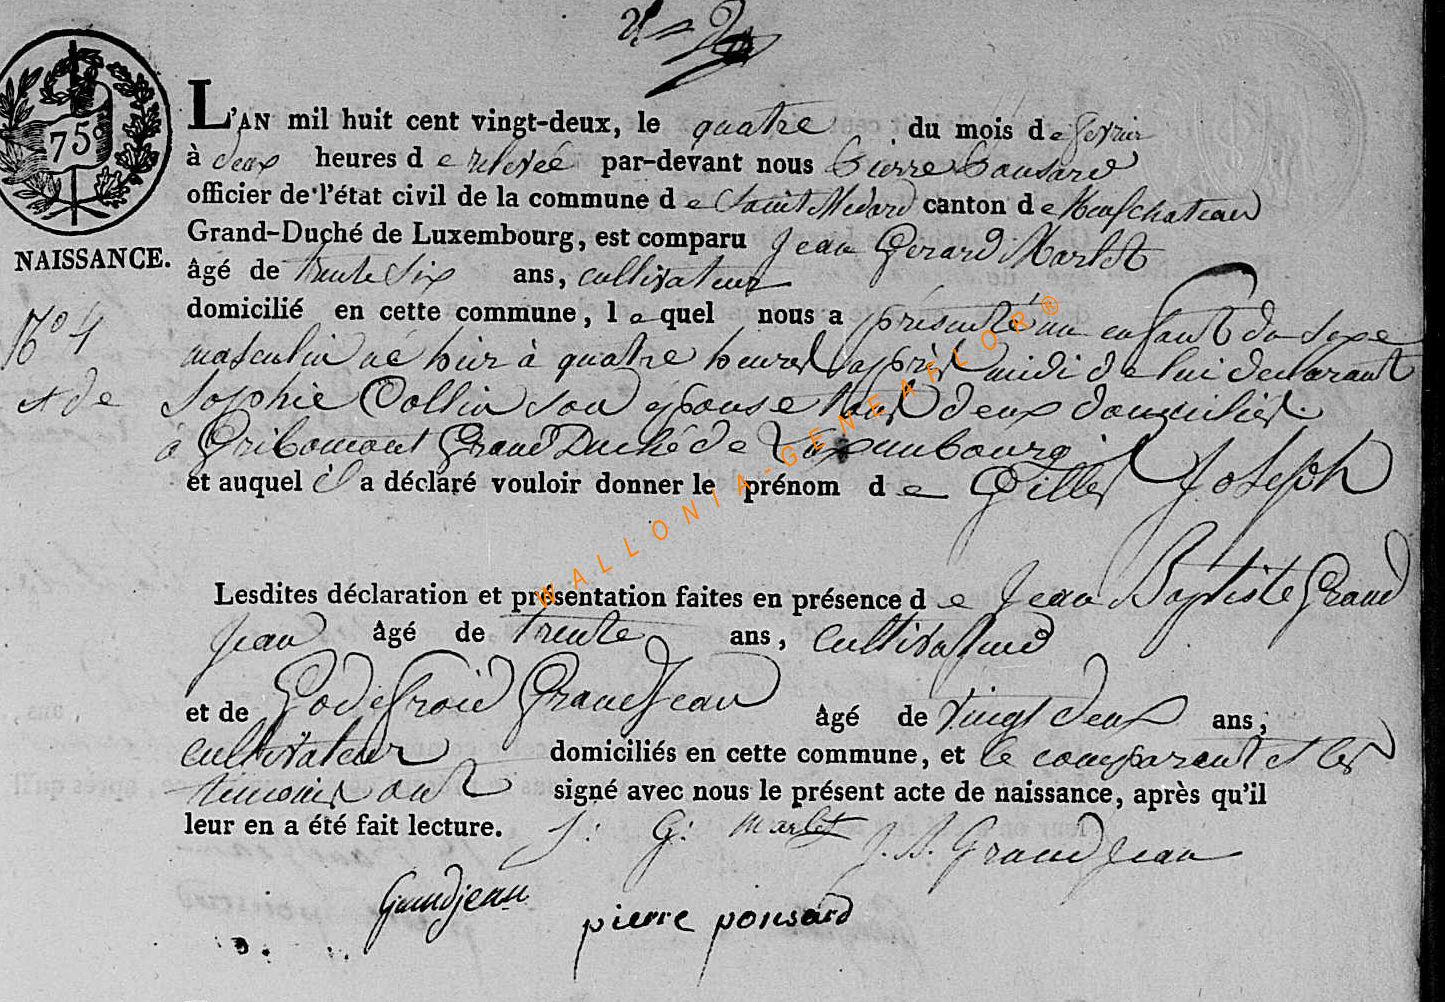 75c
NAISSANCE.
N° 4
L'AN mil huit cent vingt-deux, le quatre du mois de fevrier
à deux heures de relevée par-devant nous Pierre Ponsard
officier de l'état civil de la commune de Saint Médard canton de Neufchateau
Grand-Duché de Luxembourg, est comparu Jean Gerard Marlet
âgé de trente six ans, cultivateur
domicilié en cette commune, lequel nous a présenté un enfant du sexe
masculin né hier à quatre heures après midi de lui declarant
et de Sophie Collin son épouse tous deux domiciliés
à Gribomont Grand Duché de Luxembourg
et auquel il a déclaré vouloir donner le prénom de Gilles Joseph
Lesdites déclaration et présentation faites en présence de Jean Baptiste Grand
Jean âgé de trente ans, cultivateur
et de Godefroid Grandjean âgé de vingt deux ans,
cultivateur domiciliés en cette commune, et le comparant et les
témoins ont signé avec nous le présent acte de naissance, après qu'il
leur en a été fait lecture. J: G: Marlet J. B. Grandjean
Grandjean pierre ponsard
WALLONIA-GENEAFLOR®